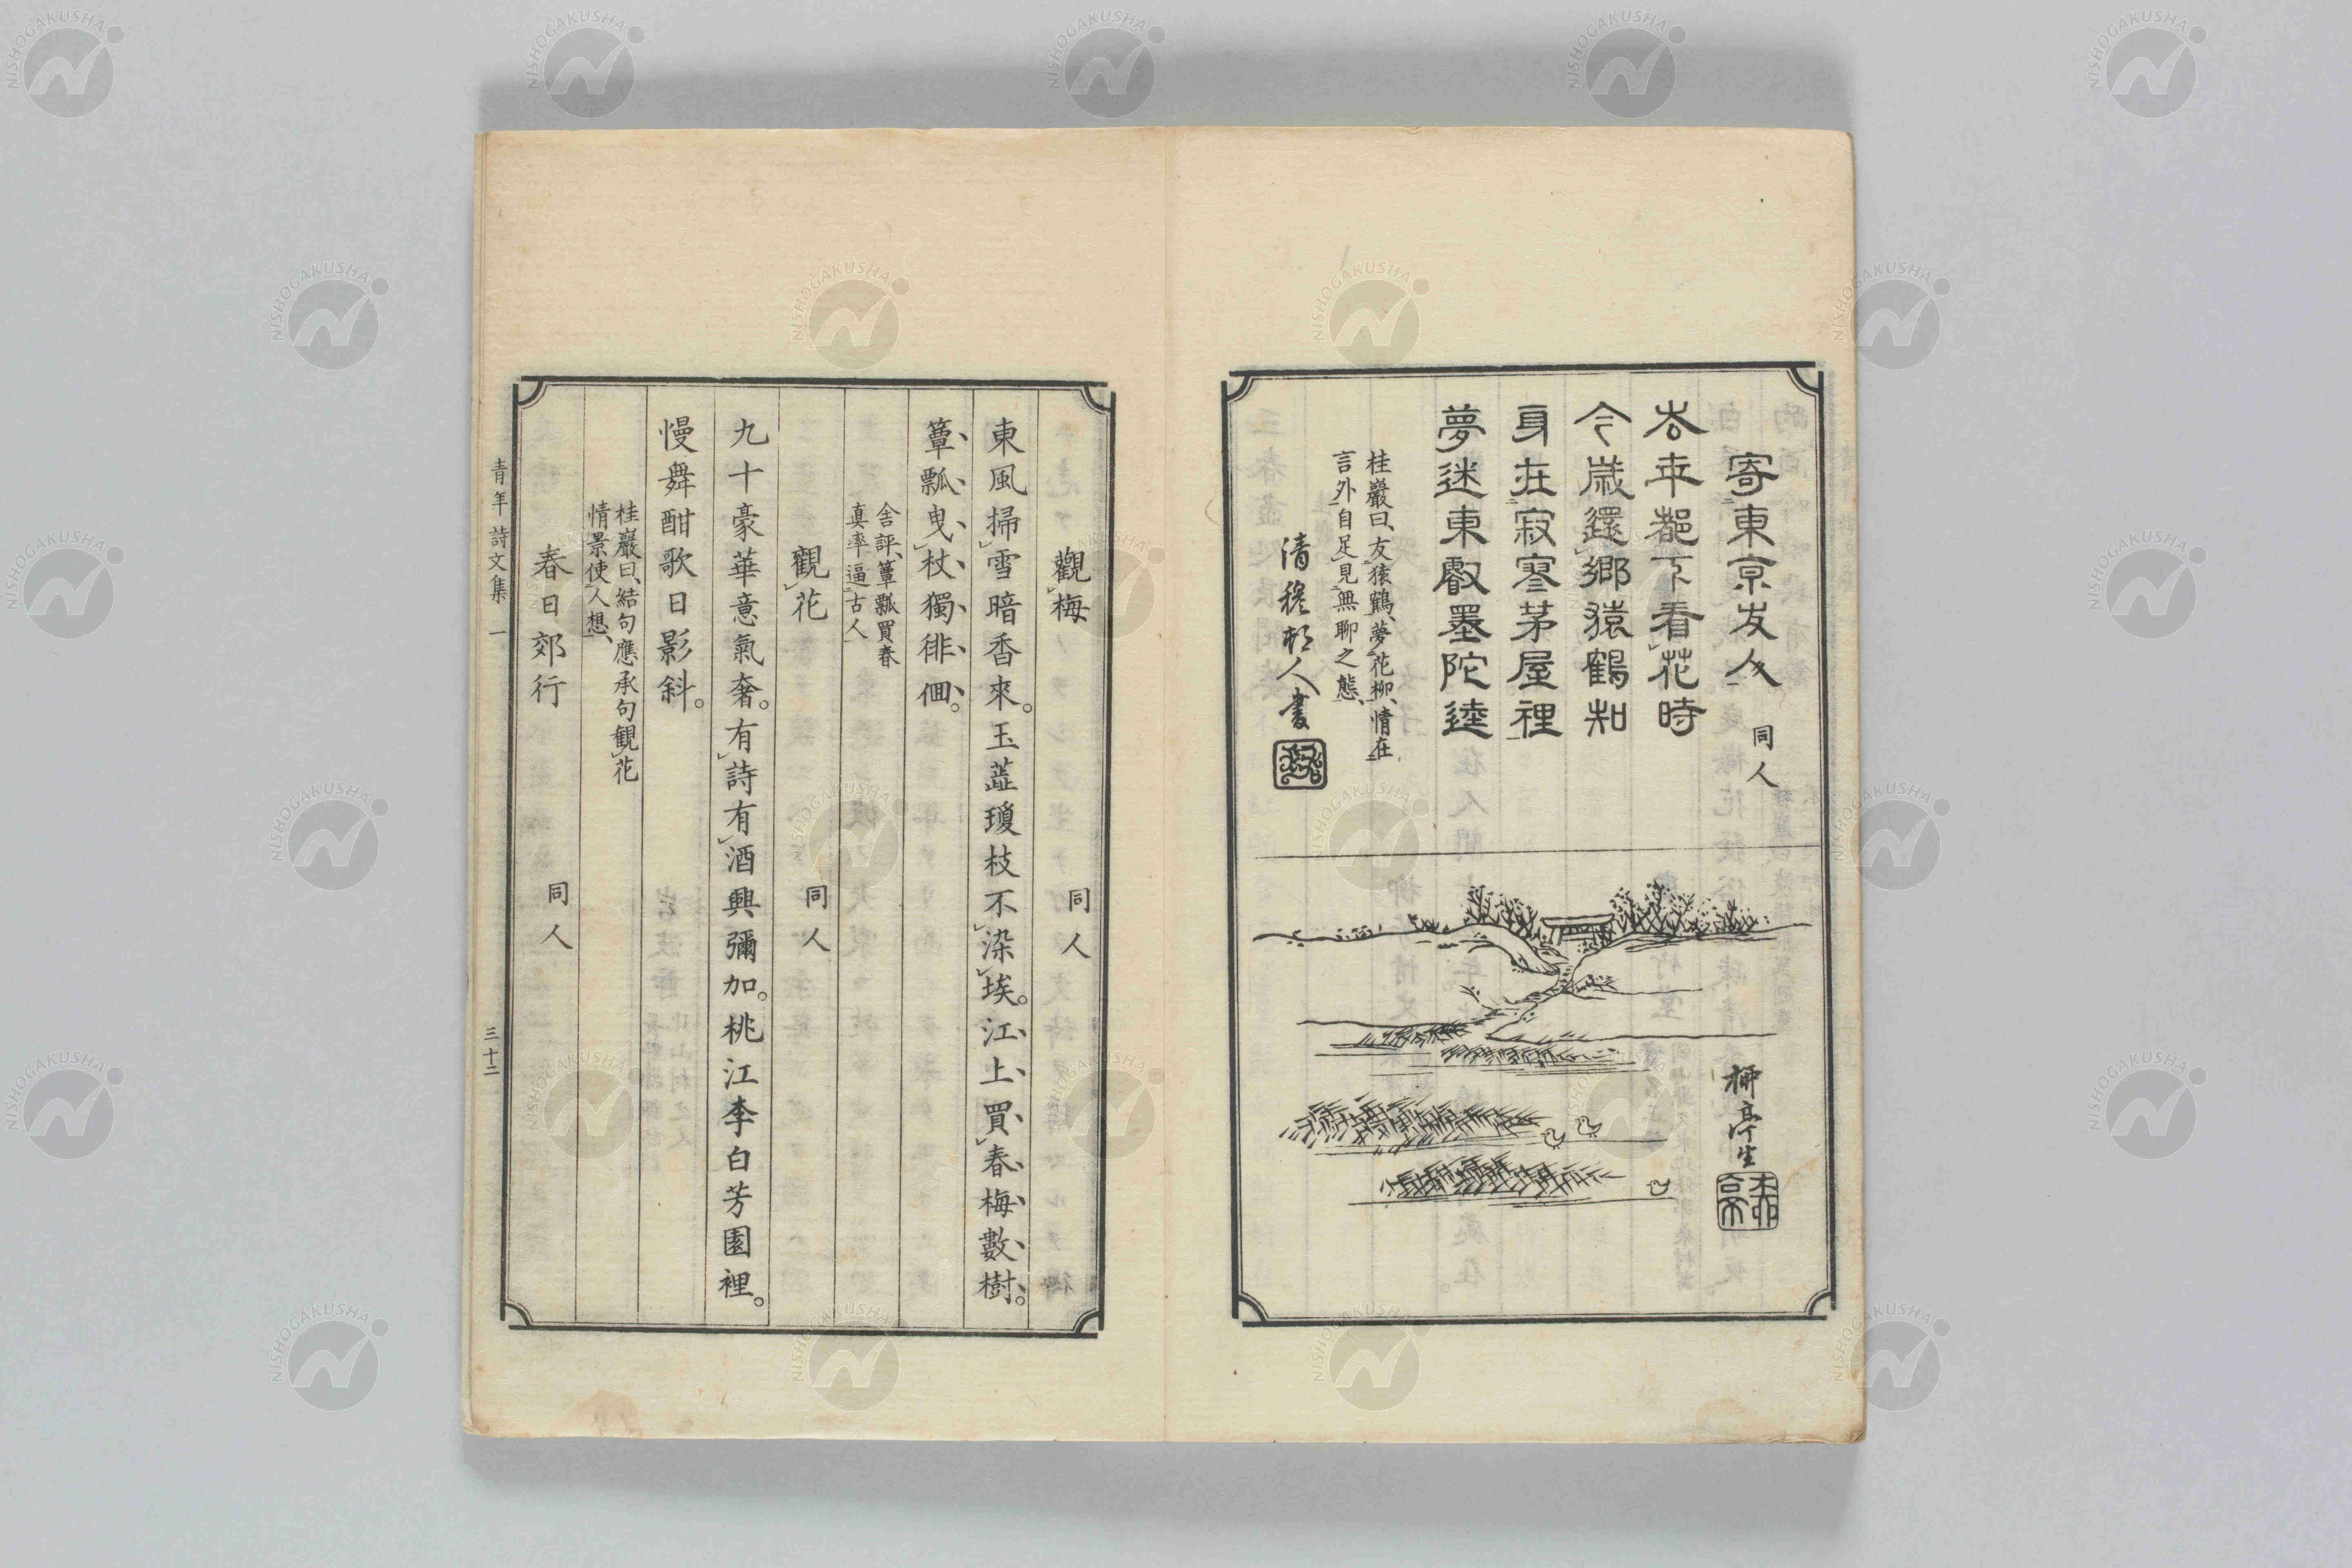 寄東京友人 同人
去年都下看花時
今歳還郷猿鶴知
身在寂寥茅屋裡
夢迷東叡墨陀逵
桂巖曰、友猿鶴、夢花柳、情在
言外、自足見無聊之態、
觀梅 同人
東風掃雪暗香來。玉蕋瓊枝不染埃。江上買春梅數樹。
簞瓢曳杖獨徘徊。
舍評、簞瓢買春
真率逼古人
觀花 同人
九十豪華意氣奢。有詩有酒興彌加。桃江李白芳園裡。
慢舞酣歌日影斜。
桂巖曰、結句應承句觀花
情景使人想、
春日郊行 同人
青年詩文集 一 三十二
NISHOGAKUSHA